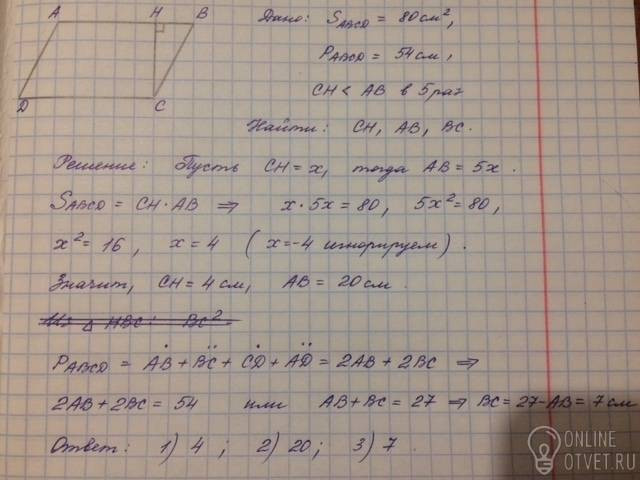 A H B
D C
Дано: SABCD = 80 см²,
PABCD = 54 см,
CH < AB в 5 раз
Найти: CH, AB, BC.
Решение: Пусть CH = x, тогда AB = 5x.
SABCD = CH · AB ⇒ x · 5x = 80, 5x² = 80,
x² = 16, x = 4 (x = -4 игнорируем).
Значит, CH = 4 см, AB = 20 см.
Из △ HBC: BC²
PABCD = AB + BC + CD + AD = 2AB + 2BC ⇒
2AB + 2BC = 54 или AB + BC = 27 ⇒ BC = 27 - AB = 7 см
Ответ: 1) 4; 2) 20; 3) 7.
ONLINE
OTVET.RU